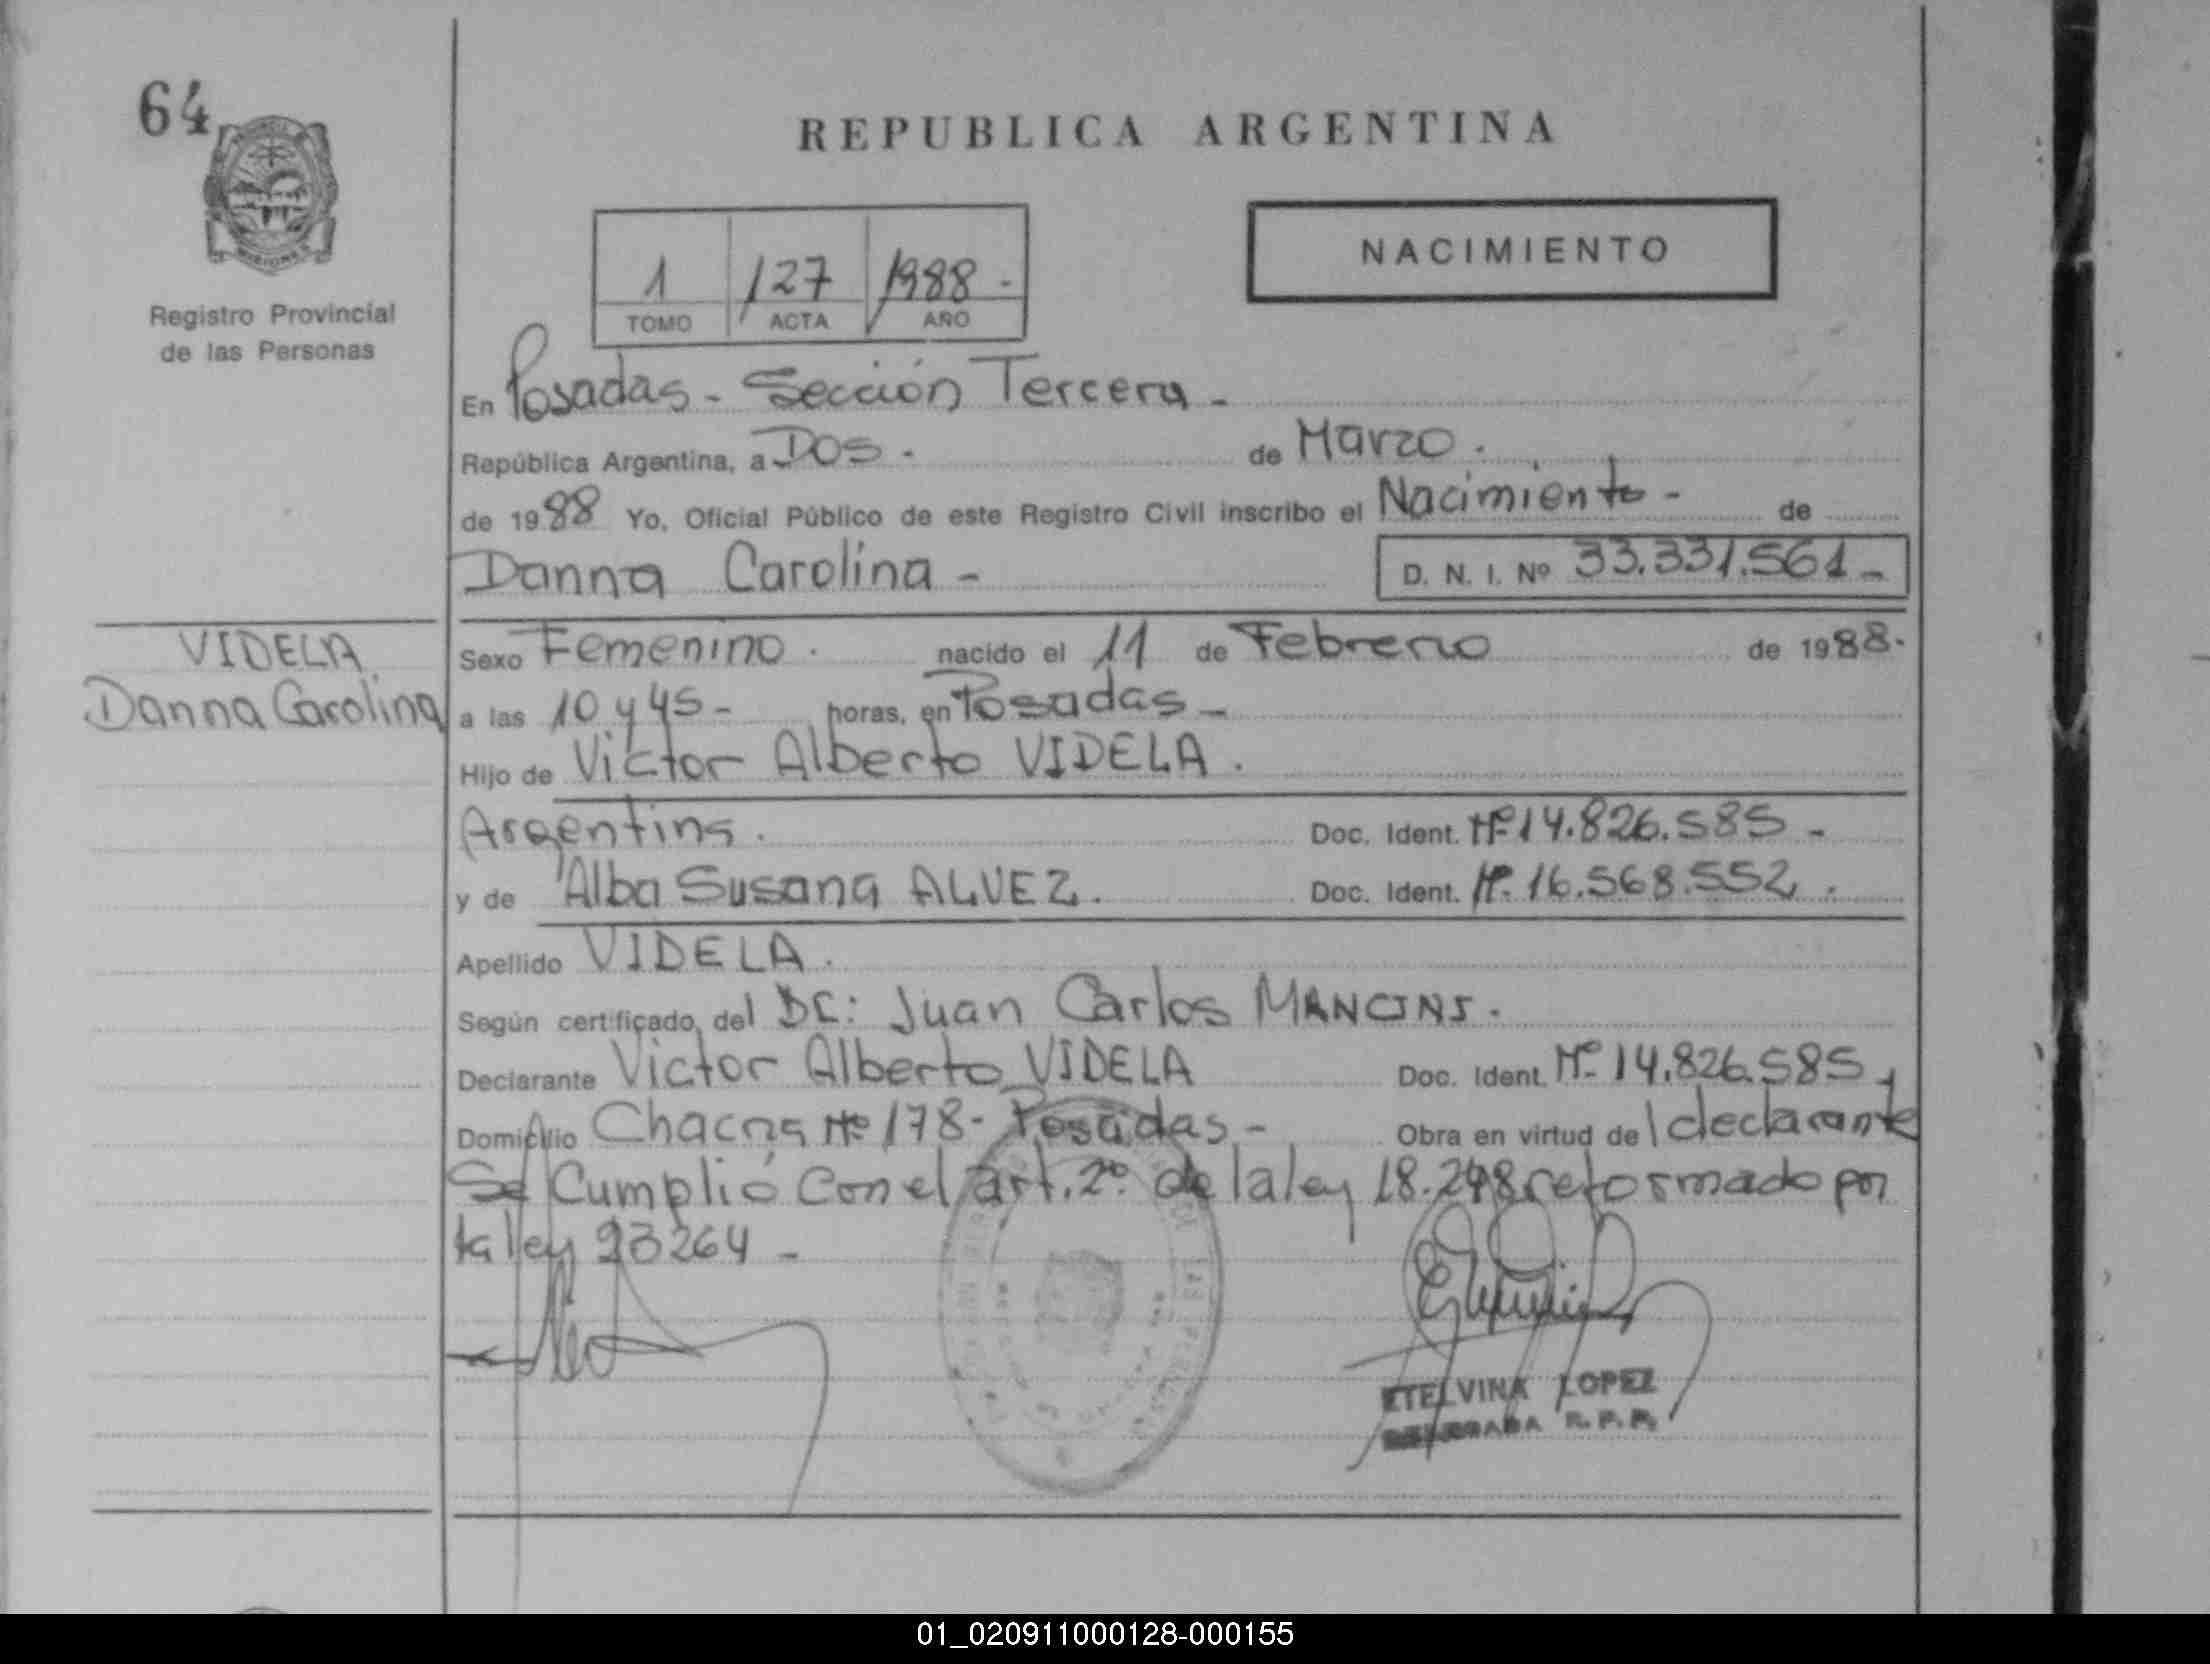 64
REPUBLICA ARGENTINA
NACIMIENTO
1 127 1988 -
TOMO ACTA AÑO
Registro Provincial
de las Personas
En Posadas - Sección Tercera -
República Argentina, a Dos. de Marzo.
de 1988 Yo, Oficial Público de este Registro Civil inscribo el Nacimiento - de
Danna Carolina - D. N. I. Nº 33.331.561 -
VIDELA
Danna Carolina
Sexo Femenino. nacido el 11 de Febrero de 1988.
a las 10 y 45 - horas, en Posadas -
Hijo de Victor Alberto VIDELA.
Argentina. Doc. Ident. Nº 14.826.585 -
y de Alba Susana ALVEZ. Doc. Ident. Nº 16.568.552.
Apellido VIDELA.
Según certificado del Juan Carlos MANCINI.
Declarante Victor Alberto VIDELA Doc. Ident. Nº 14.826.585,
Domicilio Chacra Nº 178 - Posadas - Obra en virtud del declarante
Se Cumplió con el art. 2º de la ley 18.248 reformado por
la ley 23264 -
ETELVINA LOPEZ
DELEGADA R.P.P.
01_020911000128-000155